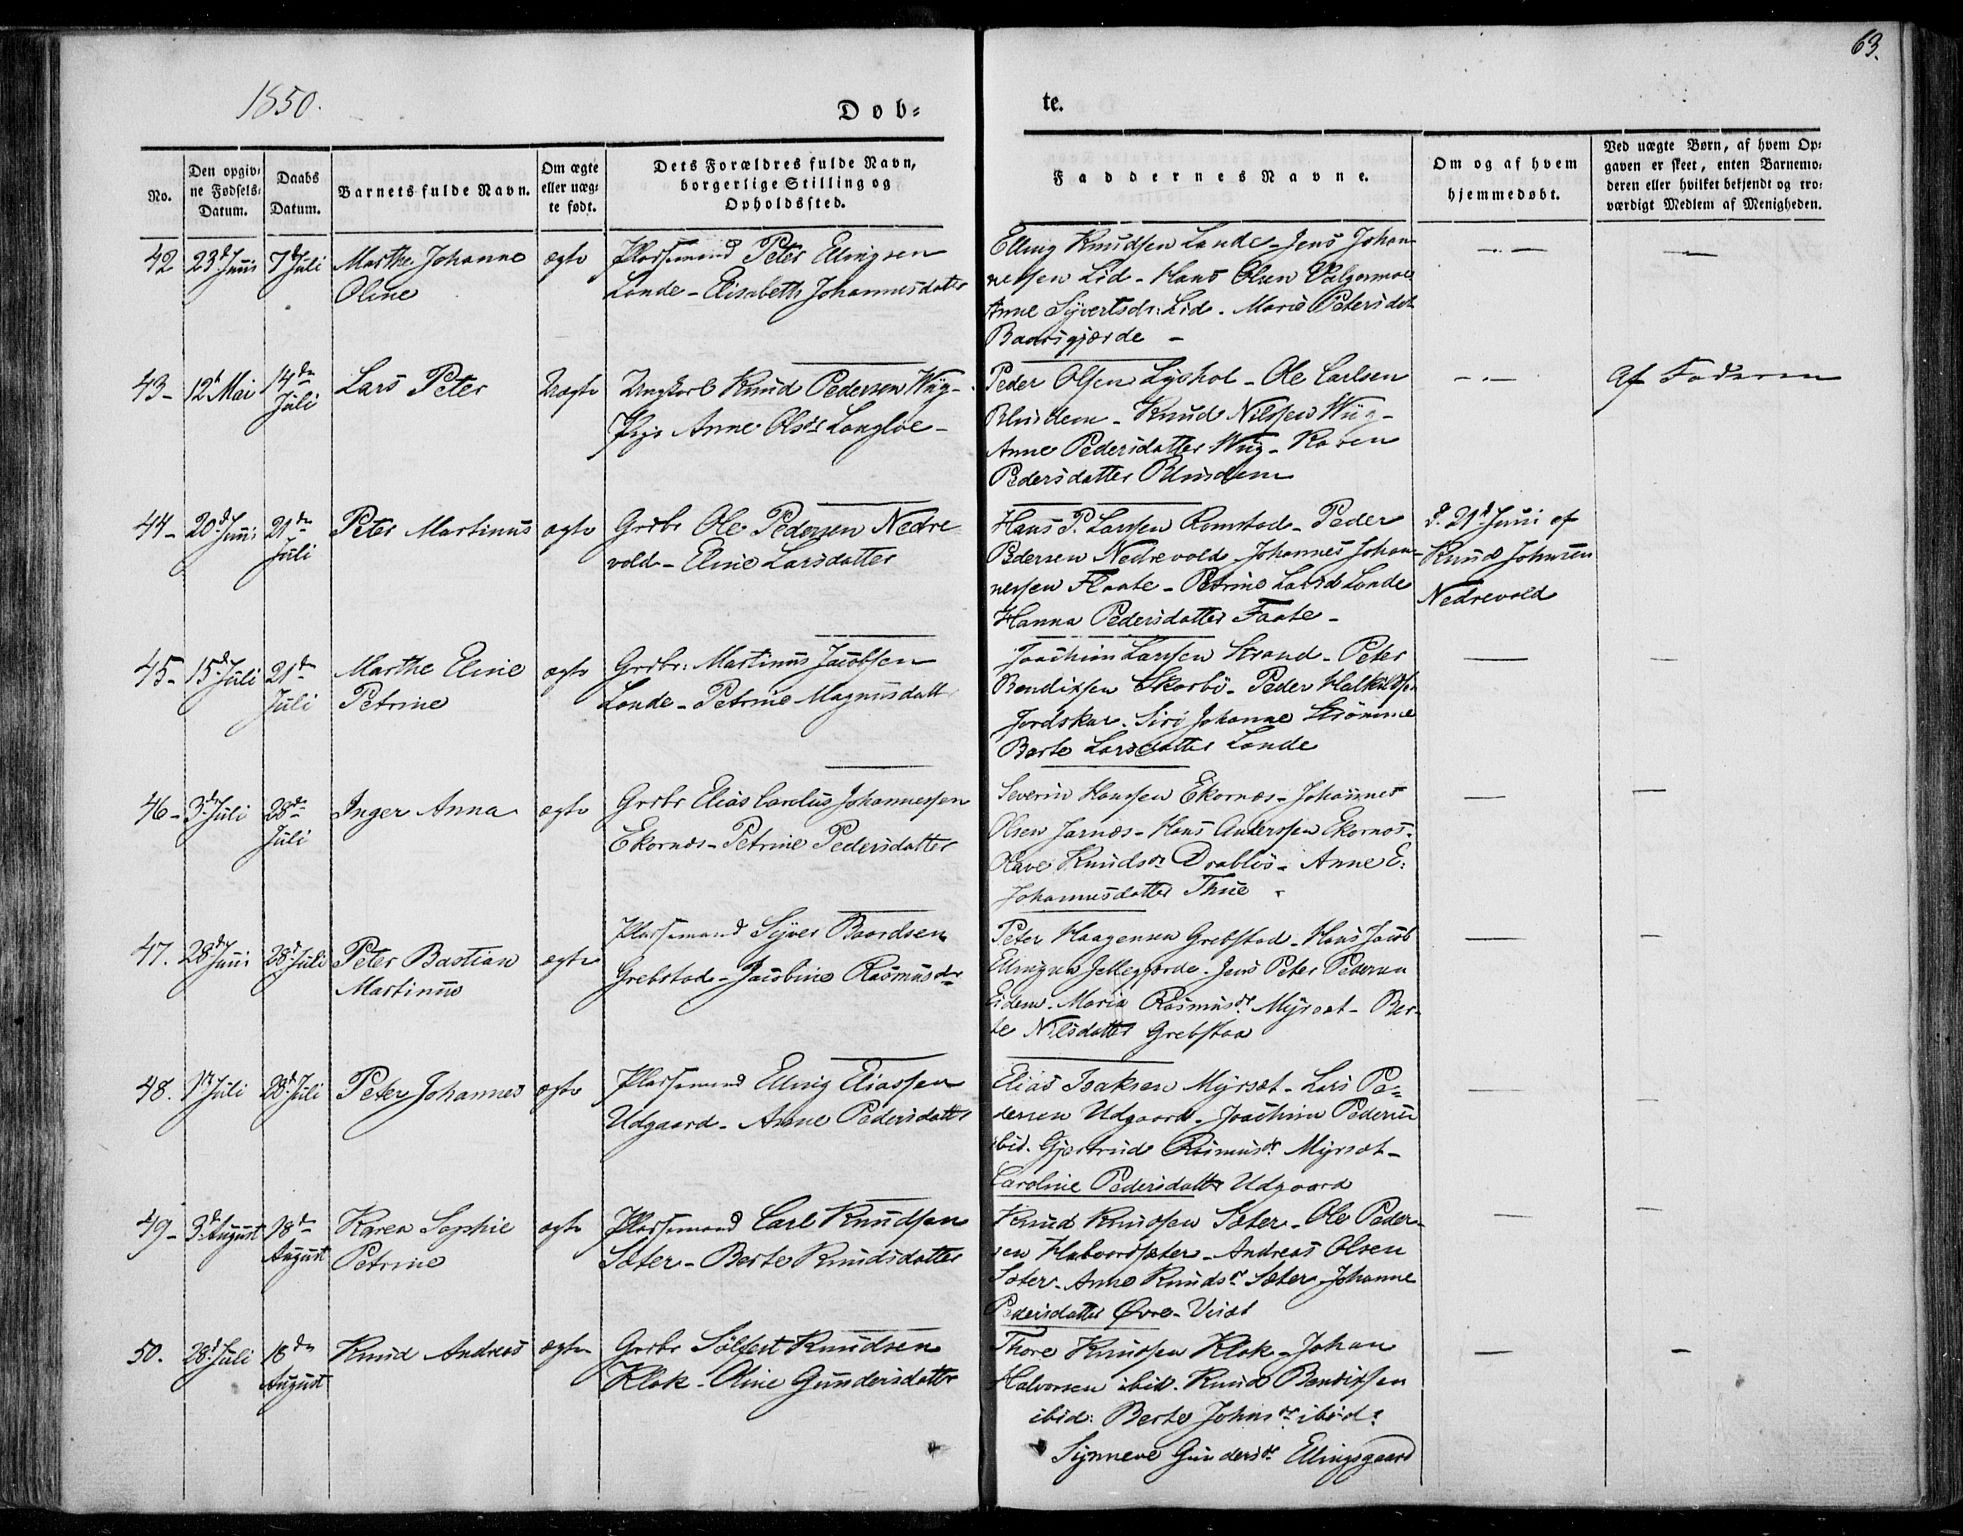 1850.
Døb-
te.
63.
No.
Den opgiv-
ne Fødsels-
Datum.
Daabs
Datum.
Barnets fulde Navn.
Om ægte
eller uæg-
te født.
Dets Forældres fulde Navn,
borgerlige Stilling og
Opholdssted.
Faddernes Navne.
Om og af hvem
hjemmedøbt.
Ved uægte Børn, af hvem Op-
gaven er skeet, enten Barnemo-
deren eller hvilket bekjendt og tro-
værdigt Medlem af Menigheden.
42 23d Juni 7d Juli Marthe Johanne ægte Pladsemand Peter Ellingsen
Oline Lande - Elisabeth Johannesdatter
Elling Knudsen Lande - Jens Johan
nessen Lid - Hans Olsen Valgermoe
Anne Syvertsdr: Lid. Marie Petersdat
Baarsgjærde -
43 - 12t Mai 14de Lars Peter Uægte Ungkarl Knud Pedersen Wiig -
Juli Pige Anne Olsdr Langløe -
Peder Olsen Lyshol - Ole Carlsen
Blindem - Knud Nilssen Wiig -
Anne Pedersdatter Wiig - Karen
Pedersdatter Blindem
Af Faderen
44 - 20d Juni 21de Peter Martinus ægte Grdbr Ole Pedersen Nedre
Juli vold - Eline Larsdatter
Hans P. Larssen Ramstad - Peder
Pedersen Nedrevold Johannes Johan-
nessen Flaate - Petrine Larsd Lande
Hanna Pedersdatter Faate -
d. 21d Juni af
Knud Johnsen
Nedrevold
45 - 15d Juli 21de Marthe Eline ægte Grdbr. Martinus Jacobsen
Juli Petrine Lande - Petrine Magnusdatt
Joachim Larssen Strand - Peter
Bendixsen Skorbø - Peder
Jordskar. Siri Johanne Strømme
Berte Larsdatter Lande
46 - 3d Juli 28de Inger Anna ægte Grdbr Elias Carolus Johannessen
Juli Ekornæs - Petrine Pedersdatter
Severin Hanssen Ekornæs - Johannes
Olsen Jarnæs - Hans Anderssen Ekornæs.
Olave Knudsdr Drabløs - Anne E.
Johannesdatter Thue.
47. 28d Juni 28d Juli Peter Bastian ægte Pladsemand Syver Baardsen
Martinus Grebstad - Jacobine Rasmusdr
Peter Haagensen Grebstad - Hans Jacob
Ellingsen Jellegjerde. Jens Peter Pedersen
Eidem. Maria Rasmusdr Myrset - Ber-
te Nilsdatter Grebstad
48. 1st Juli 28d Juli Peter Johannes ægte Pladsemand Elling Eliassen
Udgaard - Anne Pedersdatter
Elias Isaksen Myrset - Lars Pe-
dersen Udgaard - Joachim Pedersen
ibid. Gjertrud Rasmusdr Myrset -
Caroline Pedersdatter Udgaard
49 - 3d August 18de Karen Sophie ægte Pladsemand Carl Knudsen
August Petrine Sæter - Berte Knudsdatter
Knud Knudsen Sæter - Ole Peder-
sen Halvorsæter - Andreas Olsen
Sæter - Anne Knudsdr Sæter - Johanne
Pedersdatter Øvre-Viset
50. 28d Juli 18de Knud Andreas ægte Grdbr Sølfest Knudsen
August Klok - Oline Gundersdatter
Thore Knudsen Klok - Johan
Halvorsen ibid. Knud Bendixsen
ibid: Berte Johnsdr ibid:
Synneve Gundersdr Ellingsgaard